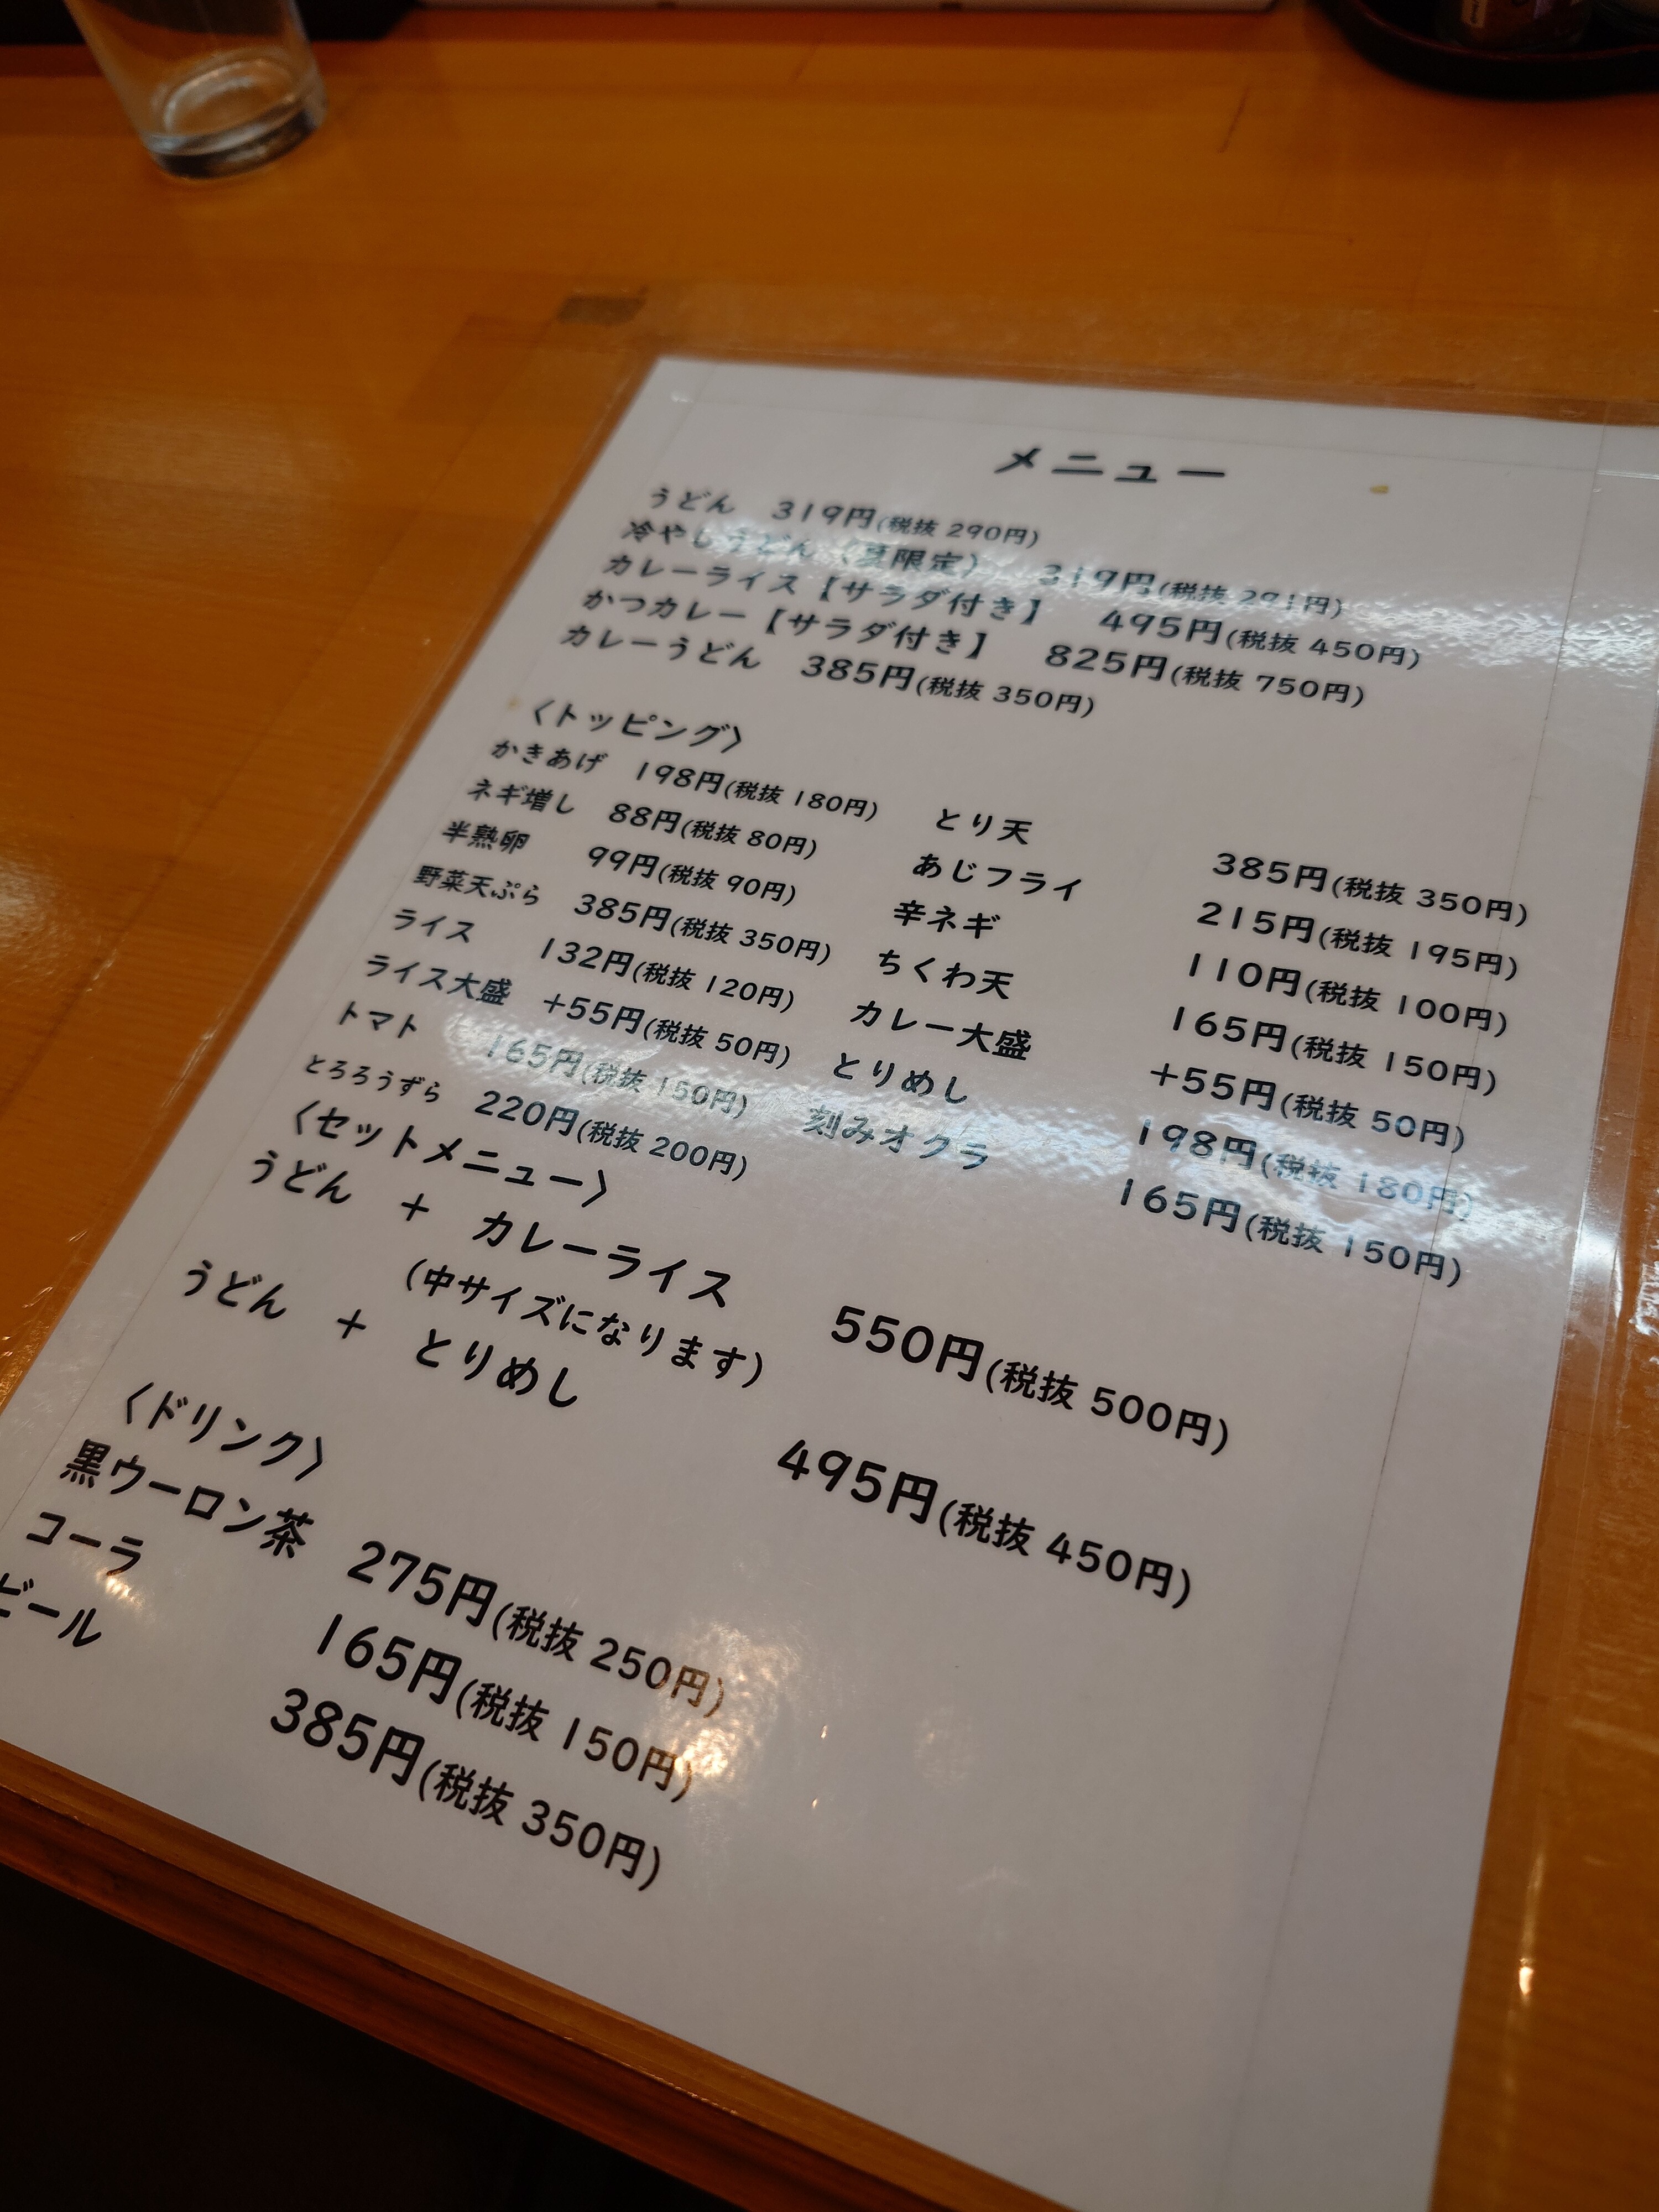 メニュー
うどん 319円(税抜 290円)
冷やしうどん(夏限定) 319円(税抜 291円)
カレーライス【サラダ付き】 495円(税抜 450円)
かつカレー【サラダ付き】 825円(税抜 750円)
カレーうどん 385円(税抜 350円)
〈トッピング〉
かきあげ 198円(税抜 180円) とり天 385円(税抜 350円)
ネギ増し 88円(税抜 80円) あじフライ 215円(税抜 195円)
半熟卵 99円(税抜 90円) 辛ネギ 110円(税抜 100円)
野菜天ぷら 385円(税抜 350円) ちくわ天 165円(税抜 150円)
ライス 132円(税抜 120円) カレー大盛 +55円(税抜 50円)
ライス大盛 +55円(税抜 50円) とりめし 198円(税抜 180円)
トマト 165円(税抜 150円) 刻みオクラ 165円(税抜 150円)
とろろうずら 220円(税抜 200円)
〈セットメニュー〉
うどん + カレーライス 550円(税抜 500円)
(中サイズになります)
うどん + とりめし 495円(税抜 450円)
〈ドリンク〉
黒ウーロン茶 275円(税抜 250円)
コーラ 165円(税抜 150円)
ビール 385円(税抜 350円)